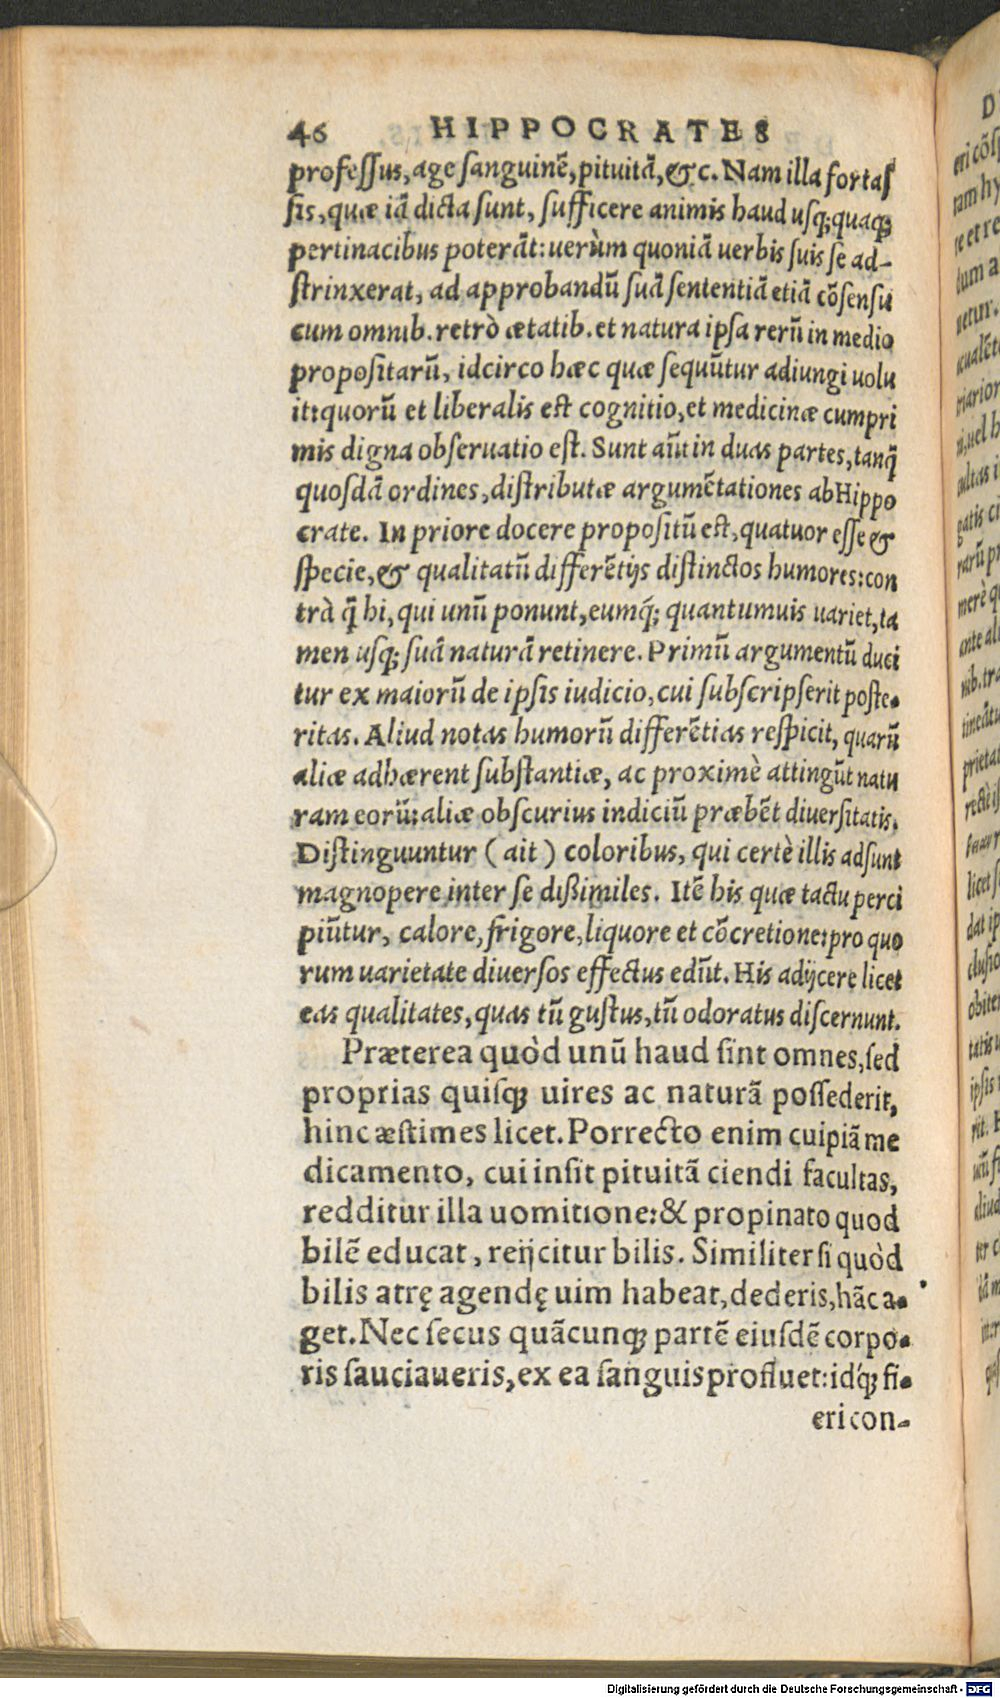 46 HIPPOCRATES
professus, age sanguinē, pituitā, &c. Nam illa fortas
sis, quæ iā dicta sunt, sufficere animis haud usq; quaq;
pertinacibus poterāt: uerùm quoniā uerbis suis se ad-
strinxerat, ad approbandū suā sententiā etiā cōsensu
cum omnib. retrò ætatib. et natura ipsa rerū in medio
propositarū, idcirco hæc quæ sequūtur adiungi uolu
it: quorū et liberalis est cognitio, et medicinæ cumpri
mis digna obseruatio est. Sunt aūt in duas partes, tanq̄
quosdā ordines, distributæ argumētationes ab Hippo
crate. In priore docere propositū est, quatuor esse &
specie, & qualitatū differētijs distinctos humores: con
trà q̄ hi, qui unū ponunt, eumq́; quantumuis uariet, ta
men usq; suā naturā retinere. Primū argumentū duci
tur ex maiorū de ipsis iudicio, cui subscripserit poste-
ritas. Aliud notas humorū differētias respicit, quarū
aliæ adhærent substantiæ, ac proximè attingūt natu
ram eorū: aliæ obscurius indiciū præbēt diuersitatis.
Distinguuntur (ait) coloribus, qui certè illis adsunt
magnopere inter se dißimiles. Itē his quæ tactu perci
piūtur, calore, frigore, liquore et cōcretione: pro quo
rum uarietate diuersos effectus edūt. His adijcere licet
eas qualitates, quas tū gustus, tū odoratus discernunt.
Præterea quòd unū haud sint omnes, sed
proprias quisq; uires ac naturā possederit,
hinc æstimes licet. Porrecto enim cuipiā me
dicamento, cui insit pituitā ciendi facultas,
redditur illa uomitione: & propinato quod
bilē educat, reijcitur bilis. Similiter si quòd
bilis atrę agendę uim habeat, dederis, hāc a-
get. Nec secus quācunq; partē eiusdē corpo-
ris sauciaueris, ex ea sanguis profluet: idq́; fi-
eri con-
Digitalisierung gefördert durch die Deutsche Forschungsgemeinschaft - DFG